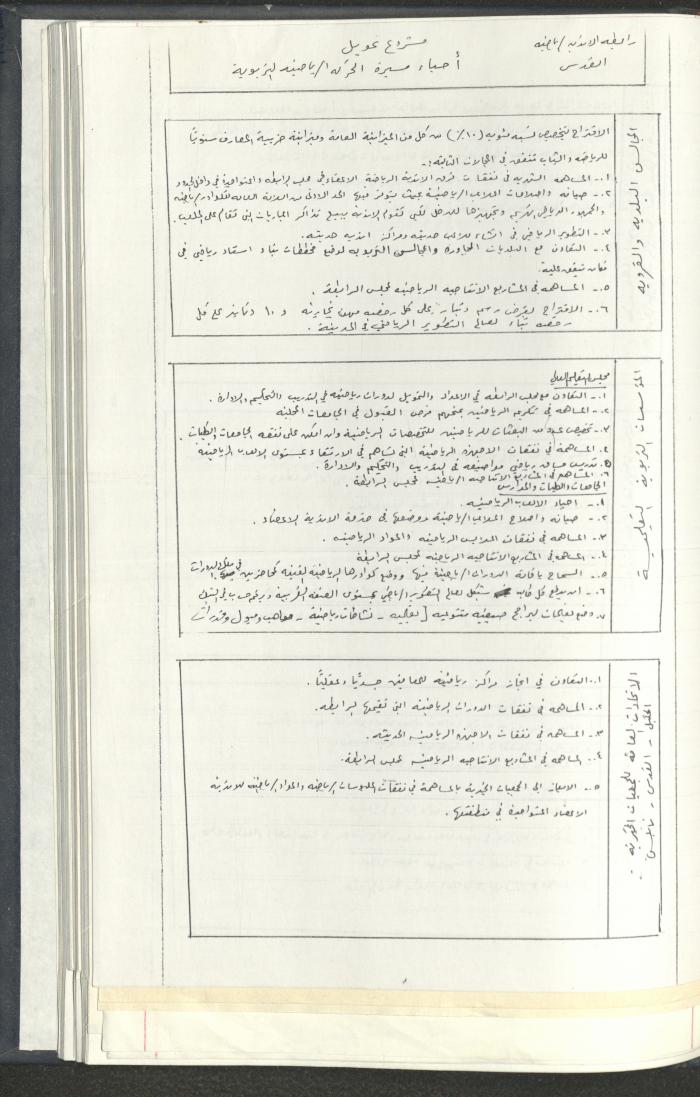 رابطة الاندية الرياضية
القدس
مشروع تمويل
أحياء مسيرة الحركة الرياضية التربوية
المجالس البلدية والقروية
الاقتراح لتخصيص نسبة مئوية (١٠٪) من كل من الميزانية العامة وميزانية ضريبة المعارف سنوياً
للرياضة والشباب تنفق في المجالات التالية :-
١.- المساهمة السنوية في نفقات فرق الاندية الرياضية الاعضاء في مجلس الرابطة والمتواجدة في داخل الحدود
٢.- صيانة واصلاحات الملاعب الرياضية بحيث يتوفر فيها الحد الادنى من السلامة العامة للكوادر الرياضية
والجمهور الرياضي الكريم وتجهيزها للدخل لكي تقوم الاندية ببيع تذاكر المباريات التي تقام على الملعب.
٣.- التطوير الرياضي في انشاء ملاعب حديثة ومراكز اندية حديثة.
٤.- التعاون مع البلديات المجاورة والمجالس القروية لوضع مخططات بناء استاد رياضي في
مكان يتفق عليه.
٥.- المساهمة في المشاريع الانتاجية الرياضية لمجلس الرابطة.
٦.- الاقتراح لفرض رسم دينار على كل رخصة مهن تجارية و ١٠ دنانير على كل
رخصة بناء لصالح التطوير الرياضي في المدينة.
المؤسسات التربوية التعليمية
مجلس التعليم العالي
١.- التعاون مع مجلس الرابطة في الاعداد والتمويل لدورات رياضية في التدريب والتحكيم والادارة.
٢.- المساهمة في تكريم الرياضيين بمنحهم فرص القبول في الجامعات المحلية
٣.- تخصيص عدد من البعثات للرياضيين للتخصصات الرياضية وان امكن على نفقة الجامعات والكليات.
٤.- المساهمة في نفقات الاجهزة الرياضية التي تساهم في الارتقاء بمستوى الالعاب الرياضية
٥.- تدريس مساق رياضي مواضيعه في التدريب والتحكيم والادارة.
٦.- المساهمة في المشاريع الانتاجية الرياضية لمجلس الرابطة.
الجامعات والكليات والمدارس
١.- احياء الالعاب الرياضية.
٢.- صيانة واصلاح الملاعب الرياضية ووضعها في خدمة الاندية الاعضاء.
٣.- المساهمة في نفقات الملابس الرياضية والمواد الرياضية.
٤.- المساهمة في المشاريع الانتاجية الرياضية لمجلس الرابطة
٥.- السماح باقامة الدورات الرياضية فيها ووضع كوادرها الرياضية الفنية كمحاضرين في الدورات
٦.- ان يدفع كل طالب شيكل لصالح التطوير الرياضي بمستوى الضفة الغربية
٧.- وضع تعليمات لبرامج صيفية متنوعة [ نشاطات رياضية - مواهب وميول وقدرات
الاتحادات العامة للجمعيات الخيرية :-
الخليل - القدس - نابلس
١.- التعاون في انجاز مراكز رياضية للمعاقين جسدياً وعقلياً.
٢.- المساهمة في نفقات الدورات الرياضية التي تقيمها الرابطة.
٣.- المساهمة في نفقات الاجهزة الرياضية الحديثة.
٤.- المساهمة في المشاريع الانتاجية الرياضية لمجلس الرابطة.
٥.- الايعاز الى الجمعيات الخيرية بالمساهمة في نفقات الملبوسات الرياضية والمواد الرياضية للاندية
الاعضاء المتواجدة في منطقتها.